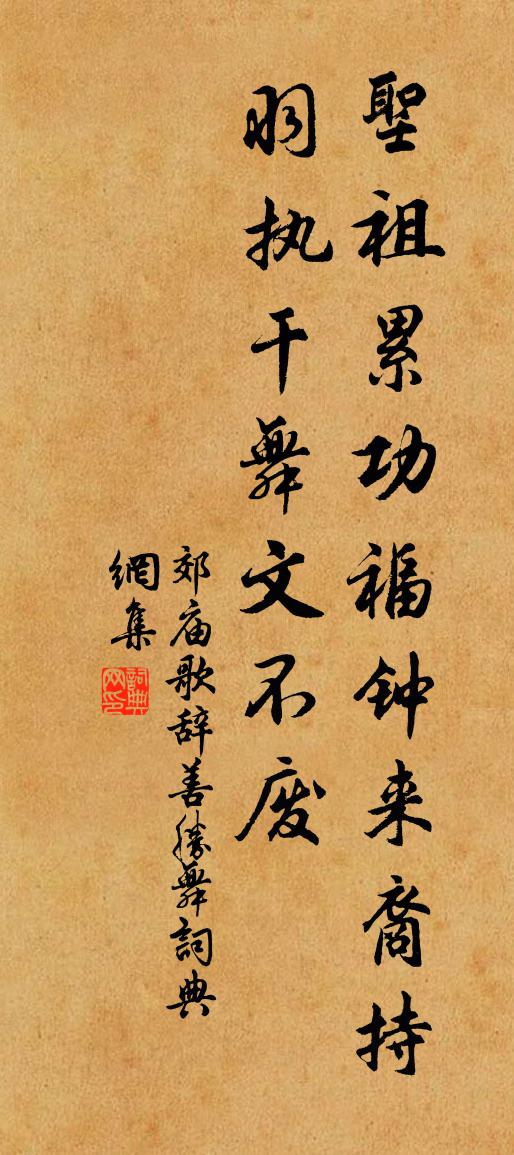 聖祖累功福钟来裔持
羽执干舞文不废
郊庙歌辞善勝舞詞典
網集
詞典
网印